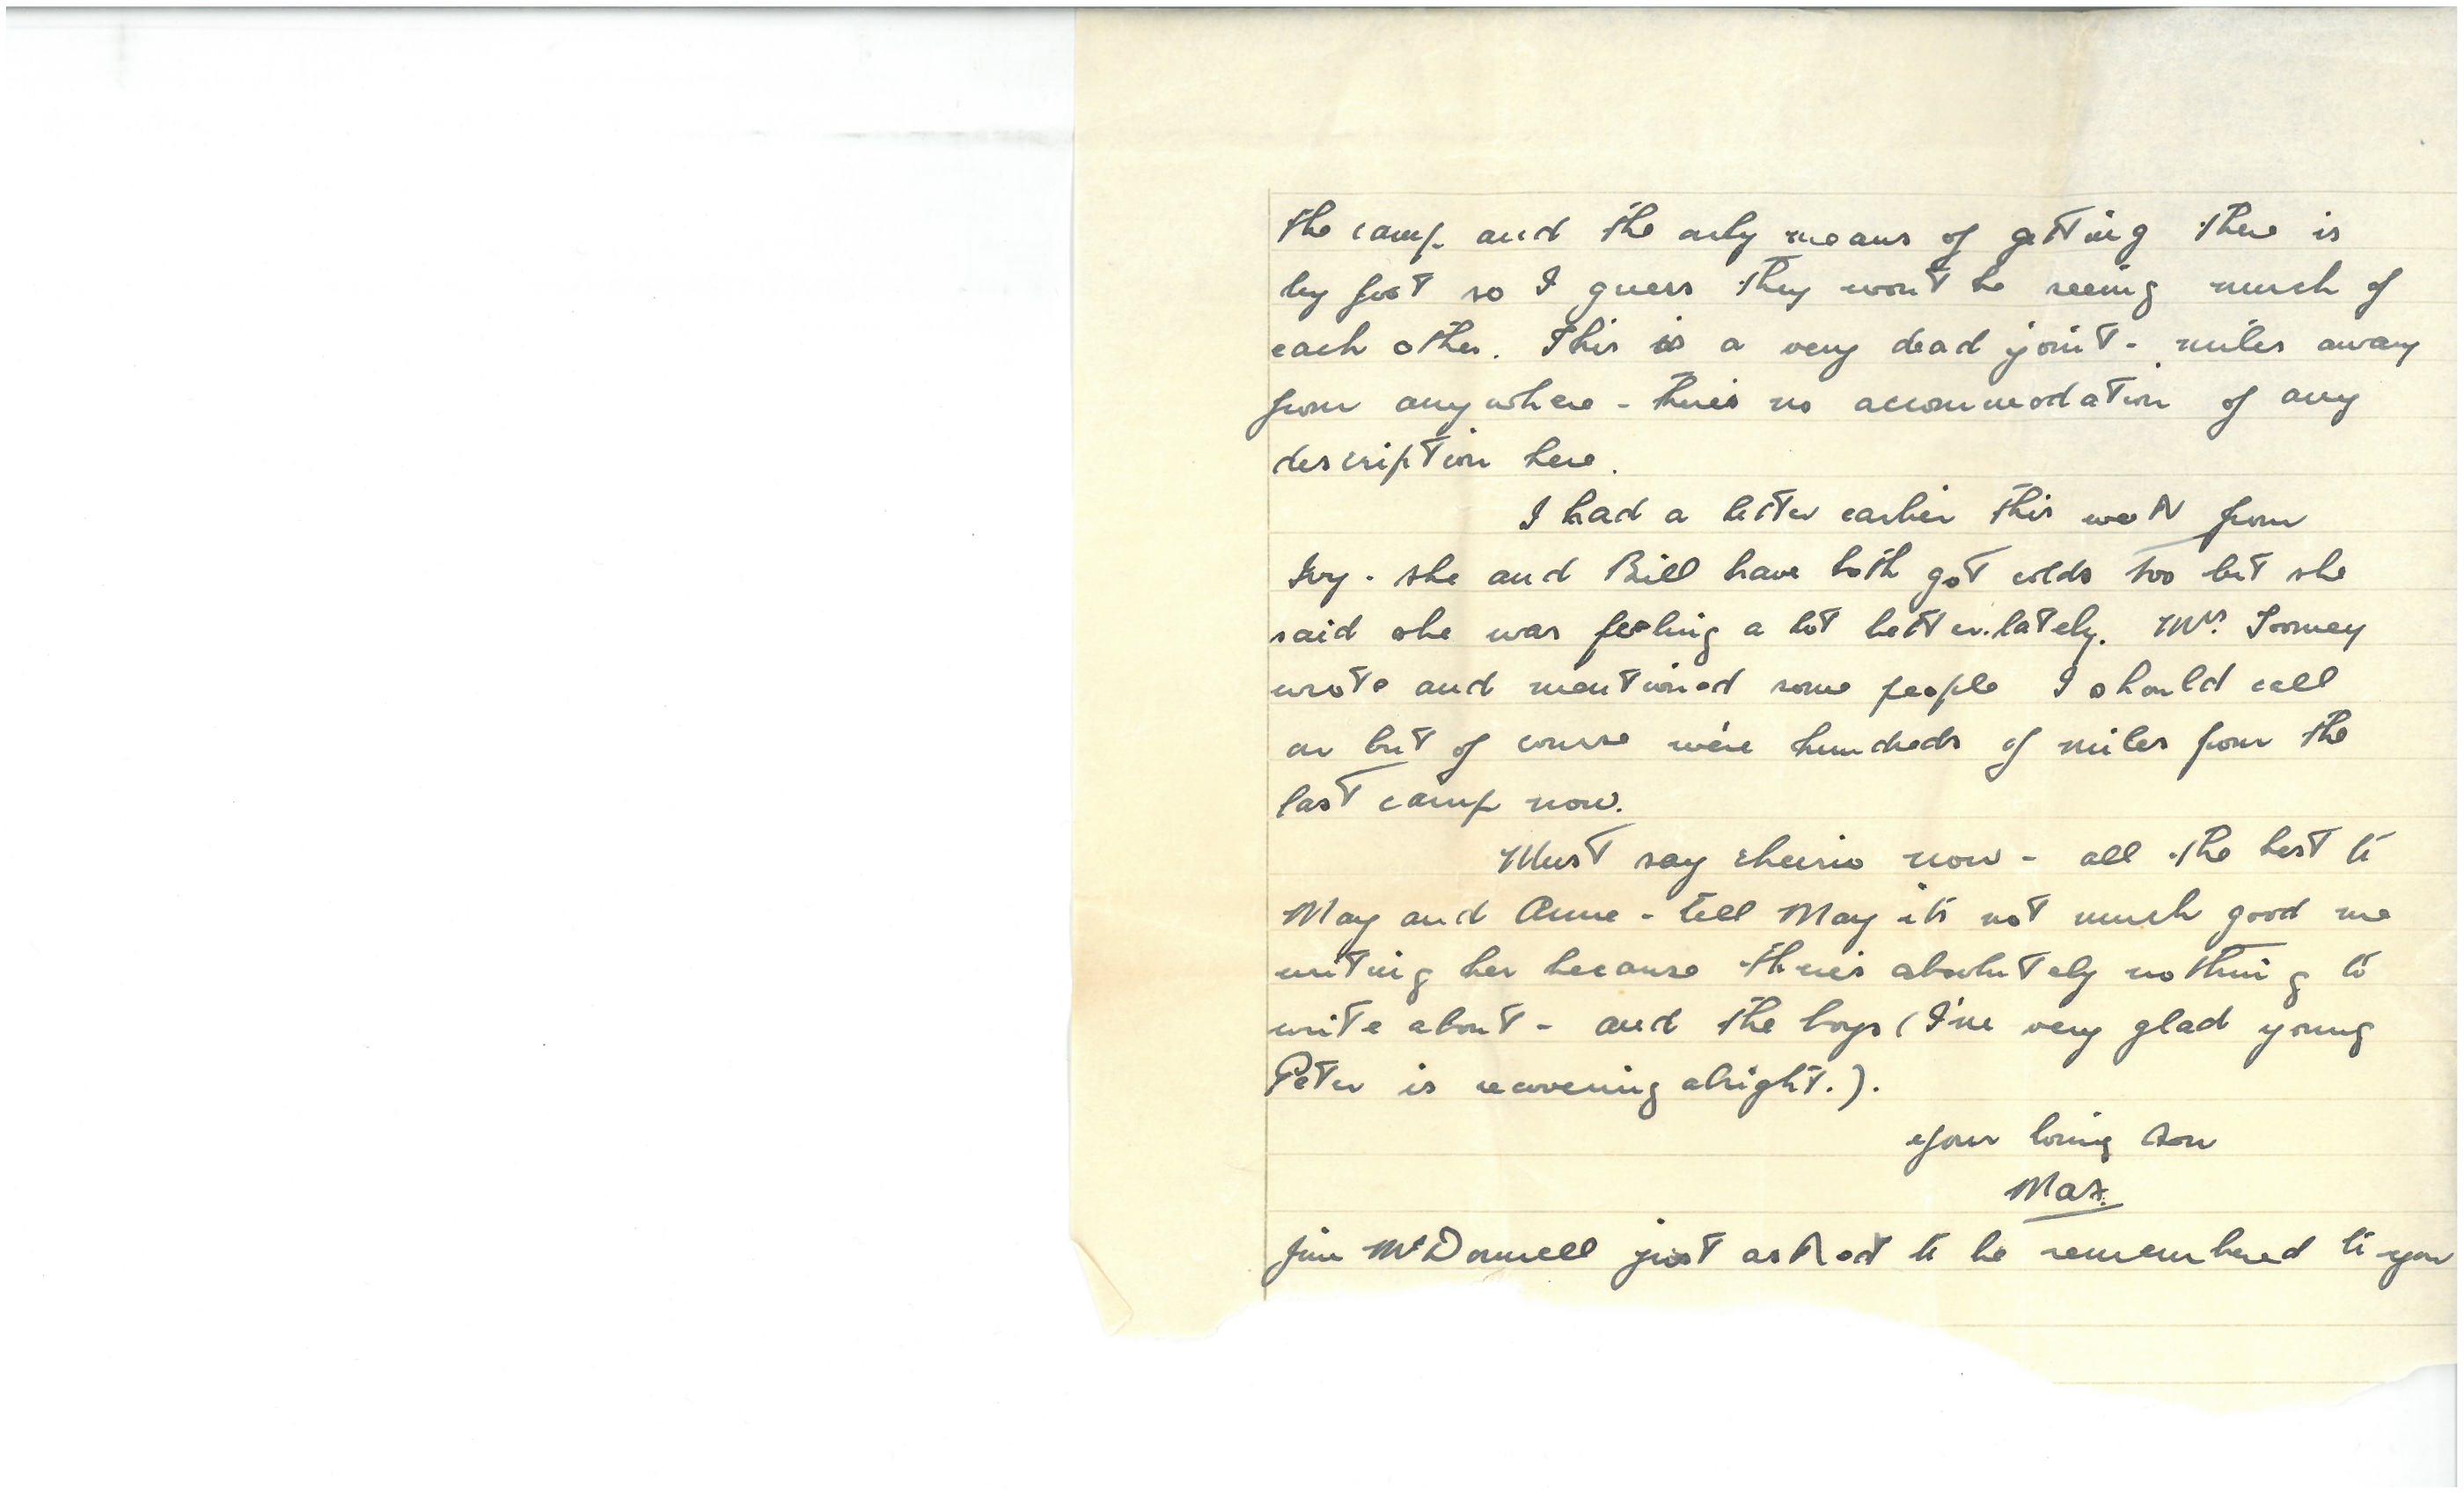 the camp and the only means of getting there is
by foot so I guess they wont be seeing much of
each other. This is a very dead joint - miles away
from anywhere - there's no accommodation of any
description here.
I had a letter earlier this week from
Ivy. she and Bill have both got colds too but she
said she was feeling a lot better lately. Mrs. Toomey
wrote and mentioned some people I should call
on but of course we're hundreds of miles from the
last camp now.
Must say cheerio now - all the best to
May and Anne - tell May it's not much good me
writing her because there's absolutely nothing to
write about - and the boys (I'm very glad young
Peter is recovering alright.).
Your loving son
Max.
Jim McDonnell just asked to be remembered to you